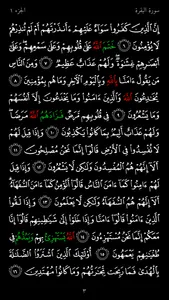 سورة البقرة
الجزء ١
إِنَّ ٱلَّذِينَ كَفَرُوا۟ سَوَآءٌ عَلَيْهِمْ ءَأَنذَرْتَهُمْ أَمْ لَمْ تُنذِرْهُمْ
لَا يُؤْمِنُونَ ٦ خَتَمَ ٱللَّهُ عَلَىٰ قُلُوبِهِمْ وَعَلَىٰ سَمْعِهِمْ وَعَلَىٰٓ
أَبْصَٰرِهِمْ غِشَٰوَةٌ وَلَهُمْ عَذَابٌ عَظِيمٌ ٧ وَمِنَ ٱلنَّاسِ
مَن يَقُولُ ءَامَنَّا بِٱللَّهِ وَبِٱلْيَوْمِ ٱلْءَاخِرِ وَمَا هُم بِمُؤْمِنِينَ ٨
يُخَٰدِعُونَ ٱللَّهَ وَٱلَّذِينَ ءَامَنُوا۟ وَمَا يَخْدَعُونَ إِلَّآ أَنفُسَهُمْ
وَمَا يَشْعُرُونَ ٩ فِى قُلُوبِهِم مَّرَضٌ فَزَادَهُمُ ٱللَّهُ مَرَضًا
وَلَهُمْ عَذَابٌ أَلِيمٌۢ بِمَا كَانُوا۟ يَكْذِبُونَ ١٠ وَإِذَا قِيلَ لَهُمْ
لَا تُفْسِدُوا۟ فِى ٱلْأَرْضِ قَالُوٓا۟ إِنَّمَا نَحْنُ مُصْلِحُونَ ١١
أَلَآ إِنَّهُمْ هُمُ ٱلْمُفْسِدُونَ وَلَٰكِن لَّا يَشْعُرُونَ ١٢ وَإِذَا قِيلَ
لَهُمْ ءَامِنُوا۟ كَمَآ ءَامَنَ ٱلنَّاسُ قَالُوٓا۟ أَنُؤْمِنُ كَمَآ ءَامَنَ ٱلسُّفَهَآءُ
أَلَآ إِنَّهُمْ هُمُ ٱلسُّفَهَآءُ وَلَٰكِن لَّا يَعْلَمُونَ ١٣ وَإِذَا لَقُوا۟
ٱلَّذِينَ ءَامَنُوا۟ قَالُوٓا۟ ءَامَنَّا وَإِذَا خَلَوْا۟ إِلَىٰ شَيَٰطِينِهِمْ قَالُوٓا۟ إِنَّا
مَعَكُمْ إِنَّمَا نَحْنُ مُسْتَهْزِءُونَ ١٤ ٱللَّهُ يَسْتَهْزِئُ بِهِمْ وَيَمُدُّهُمْ
فِى طُغْيَٰنِهِمْ يَعْمَهُونَ ١٥ أُو۟لَٰٓئِكَ ٱلَّذِينَ ٱشْتَرَوُا۟ ٱلضَّلَٰلَةَ
بِٱلْهُدَىٰ فَمَا رَبِحَت تِّجَٰرَتُهُمْ وَمَا كَانُوا۟ مُهْتَدِينَ ١٦
٣